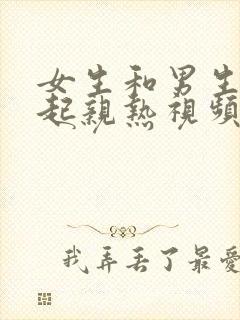 女生和男生
起親熱視頻
我弄丟了最愛